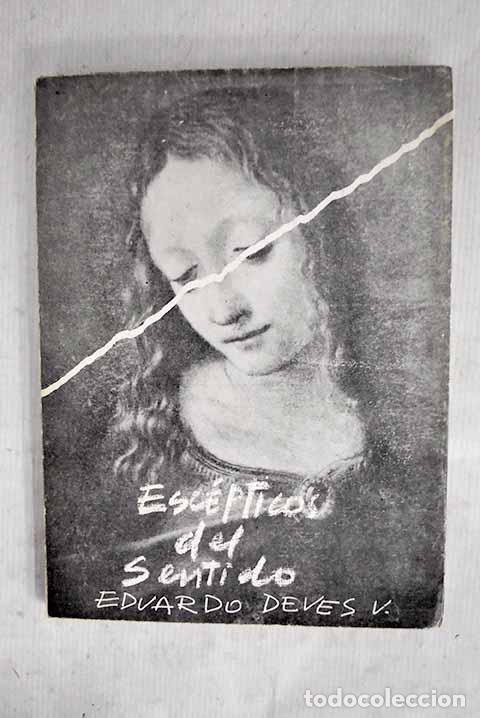 Escépticos
del
Sentido
EDUARDO DEVES V.
todocoleccion